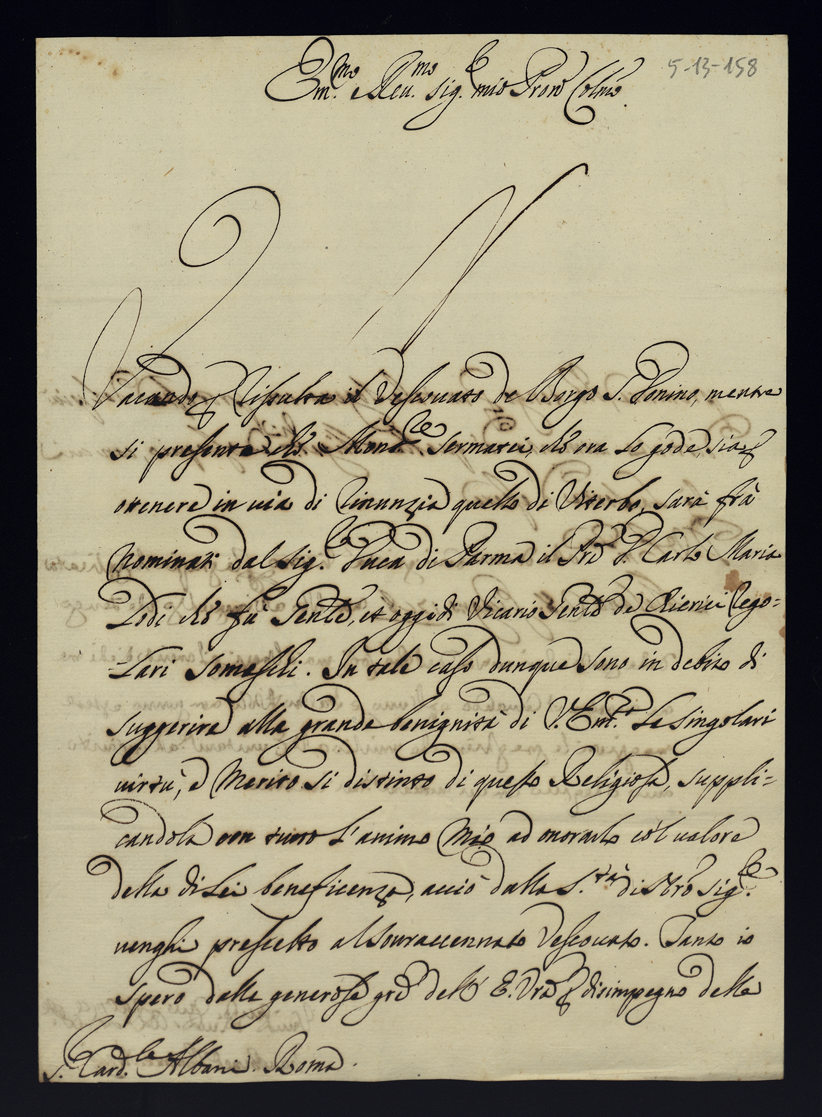 5-13-158
Em.mo e Reu.mo Sig.e mio Pron Colmo
Vacando il Vescouato de Borgo S. Donino, mentre
si presente che Mons.re Sermattei, che ora lo gode sia
ottenere in uia di rinunzia quello di Viterbo, sarà frà
Nominati dal Sig.e Duca di Parma il Pre D. Carlo Maria
Lodi che fù Gente, et oggidi Vicario Gente de Chierici Rego=
lari Somaschi. In tale caso dunque sono in debito di
suggerire alla grande benignità di V. Em.a le singolari
uirtù, e Merito si distinto di questo Religioso, suppli=
candola con tutto l'animo Mio ad onorarlo col ualore
della di Lei beneficenza, acciò dalla S.tà di Nro Sig.re
uenghi prescelto al souraccennato Vescouato. Tanto io
spero dalle generose gre dell' E. Vra disimpegno delle
S. Card.le Albani. Roma.